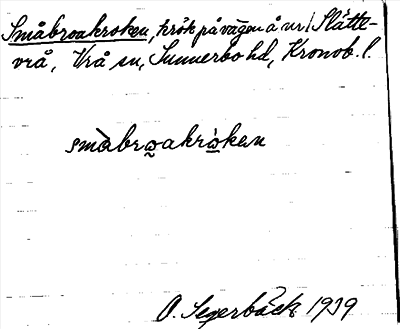 Småbroakroken, krök på vägen å nr 1 Slätte-
vrå, Vrå sn, Sunnerbo hd, Kronob. l.
småbrωakrωken
O. Segerbäck 1939